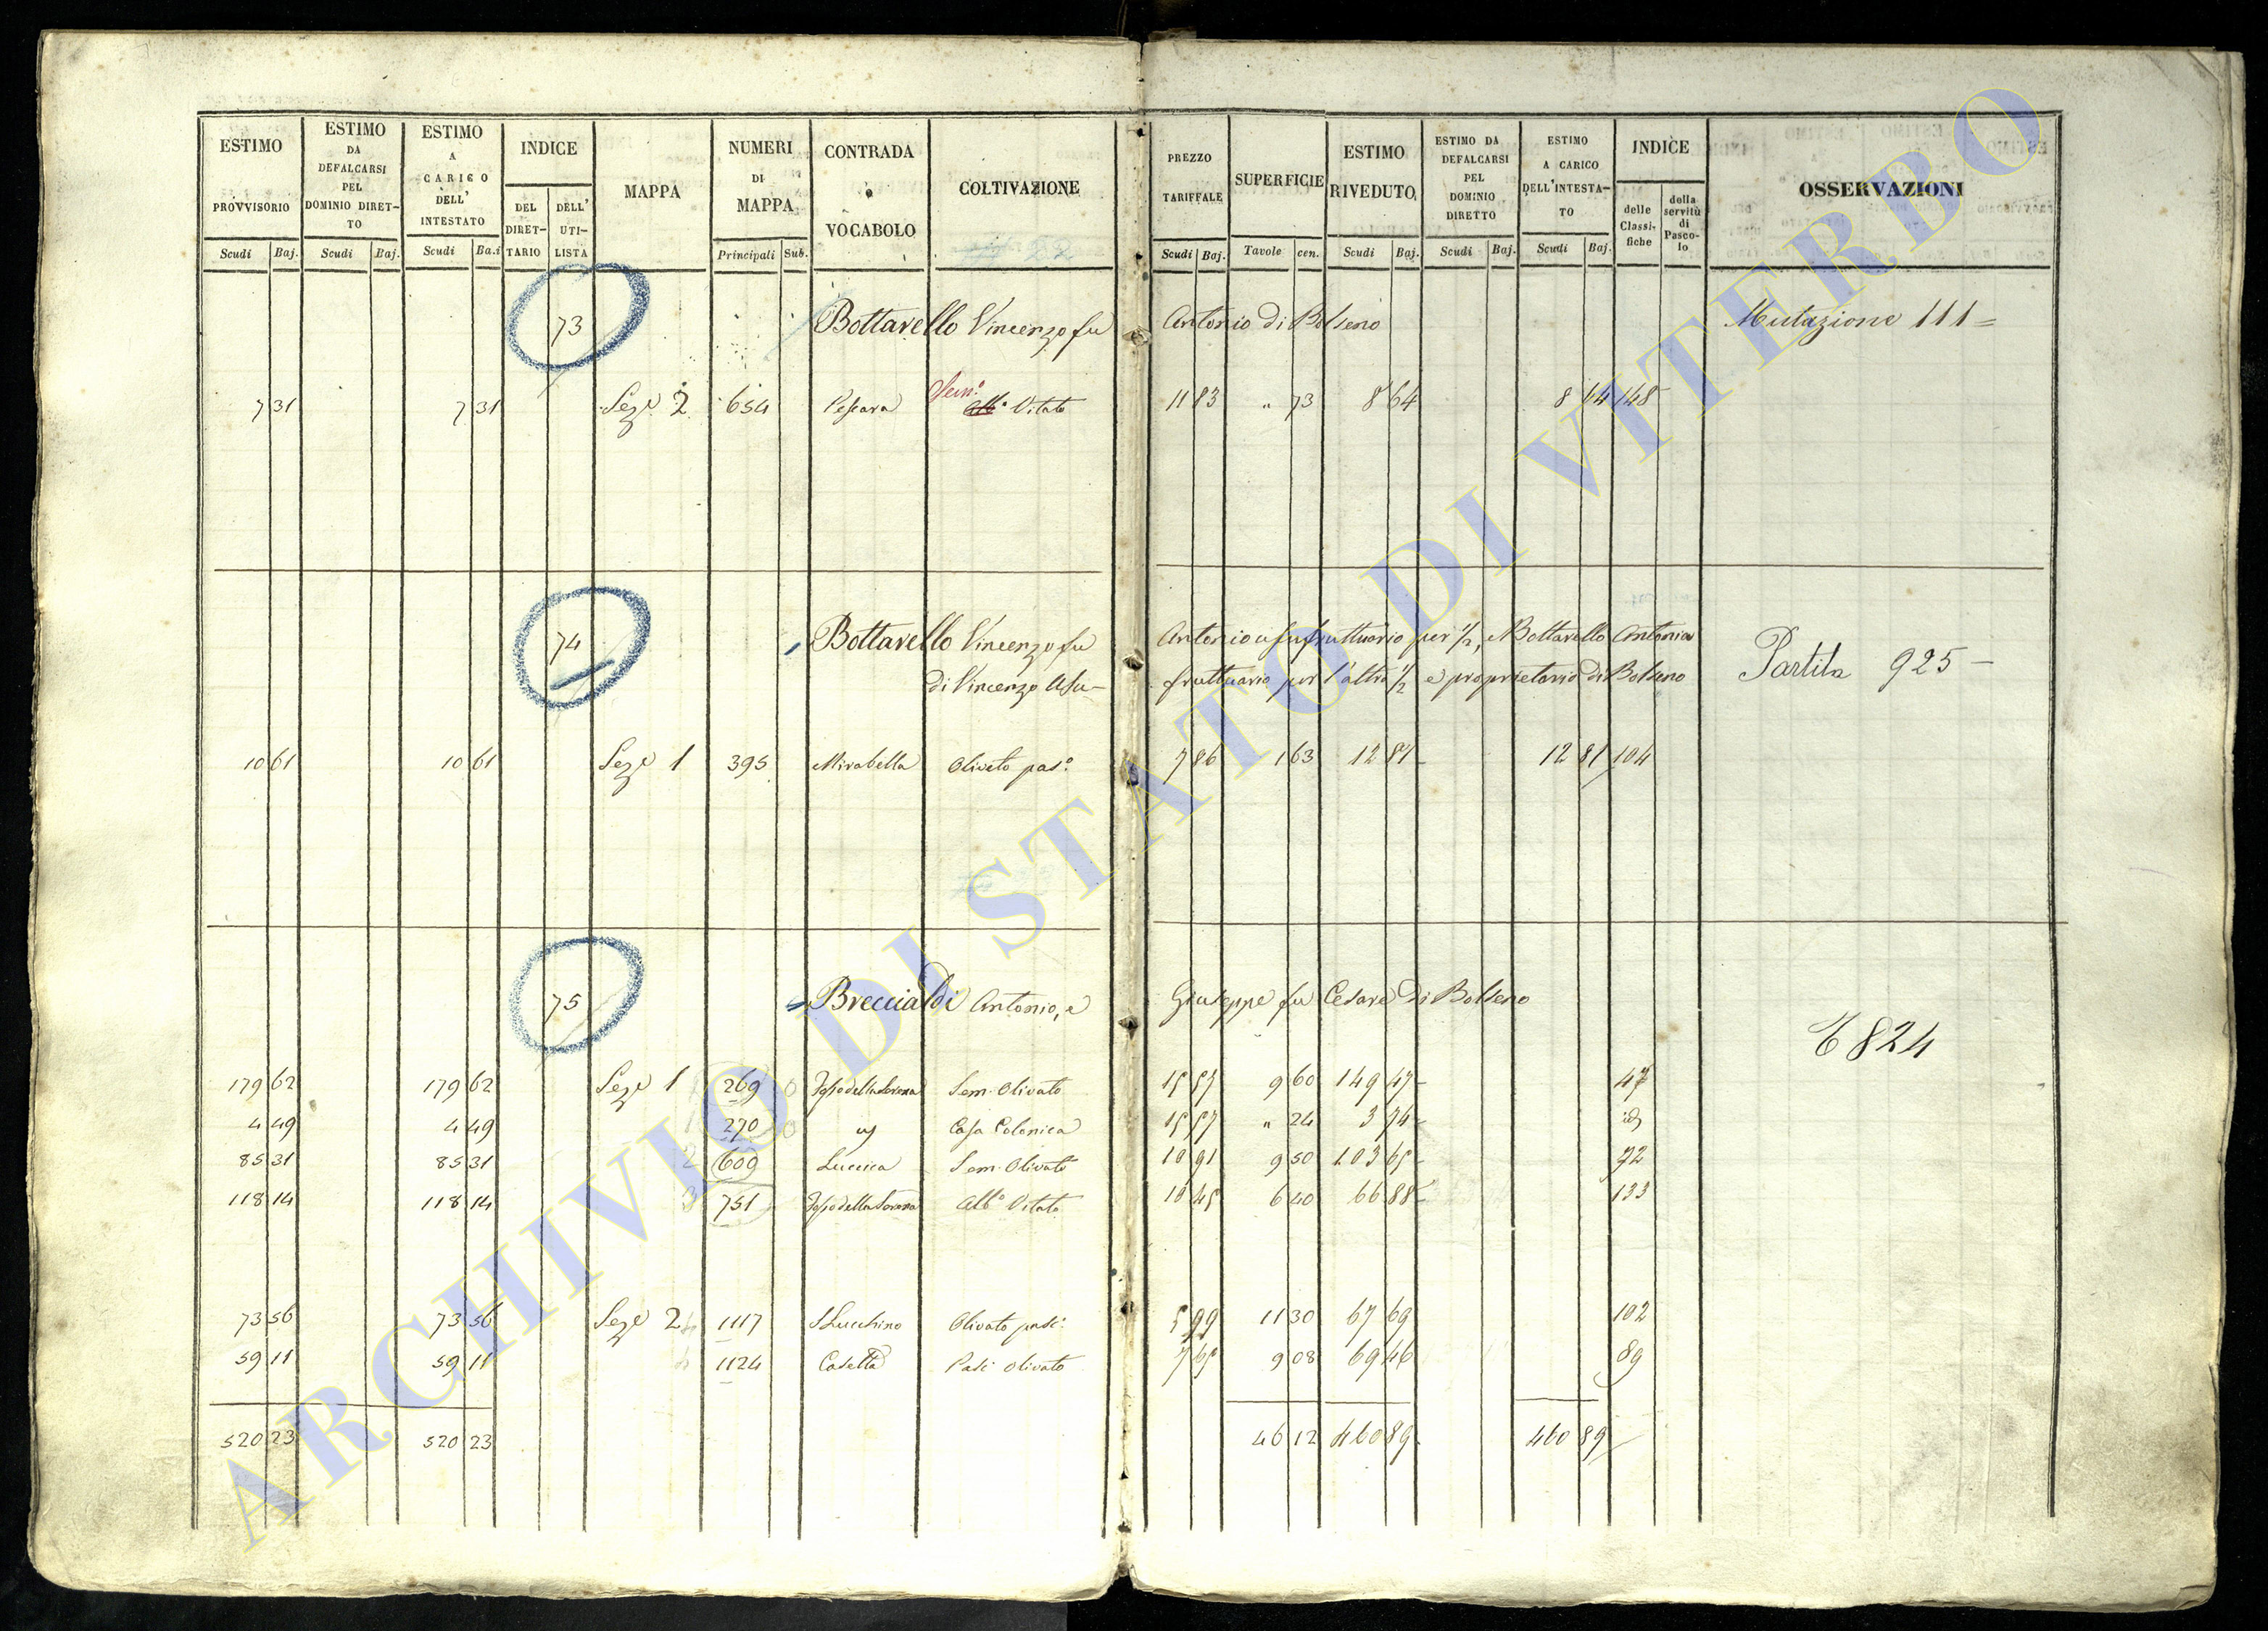 ESTIMO PROVVISORIO Scudi Baj.
ESTIMO DA DEFALCARSI PEL DOMINIO DIRET-TO Scudi Baj.
ESTIMO A CARICO DELL' INTESTATO Scudi Ba.i
INDICE DEL DIRET-TARIO DELL' UTI-LISTA
MAPPA
NUMERI DI MAPPA Principali Sub.
CONTRADA o VOCABOLO
COLTIVAZIONE
PREZZO TARIFFALE Scudi Baj.
SUPERFICIE Tavole cen.
ESTIMO RIVEDUTO Scudi Baj.
ESTIMO DA DEFALCARSI PEL DOMINIO DIRETTO Scudi Baj.
ESTIMO A CARICO DELL'INTESTA-TO Scudi Baj.
INDICE delle Classi-fiche della servitù di Pasco-lo
OSSERVAZIONI
73 Bottarello Vincenzo fu Antonio di Bolseno Mutazione 111 =
7 31 7 31 Seze 2 654 Pescara Sem.o Vitato 11 83 " 73 8 64 8 64 148
74 Bottarello Vincenzo fu Antonio usufruttuario per 1/2, e Bottarello Antonia
di Vincenzo Usu- fruttuario per l'altro 1/2 e proprietario di Bolseno Partita 925 -
10 61 10 61 Seze 1 395 Mirabella Oliveto pas.o 7 86 1 63 12 81 12 81 104
75 Breccialdi Antonio, e Giuseppe fu Cesare di Bolseno
6824
179 62 179 62 Seze 1 269 Sem. Olivato 15 57 9 60 149 47 47
4 49 4 49 270 Casa Colonica 15 57 " 24 3 74 id
85 31 85 31 2 609 Luccica Sem. Olivato 10 91 9 50 103 65 72
118 14 118 14 3 751 Alb.o Vitato 10 45 6 40 66 88 133
73 56 73 56 Seze 2 1117 S Lucchino Olivato pasc.o 5 99 11 30 67 69 102
59 11 59 11 1124 Casetta Pasc Olivato 7 65 9 08 69 46 89
520 23 520 23 46 12 460 89 460 89
ARCHIVIO DI STATO DI VITERBO